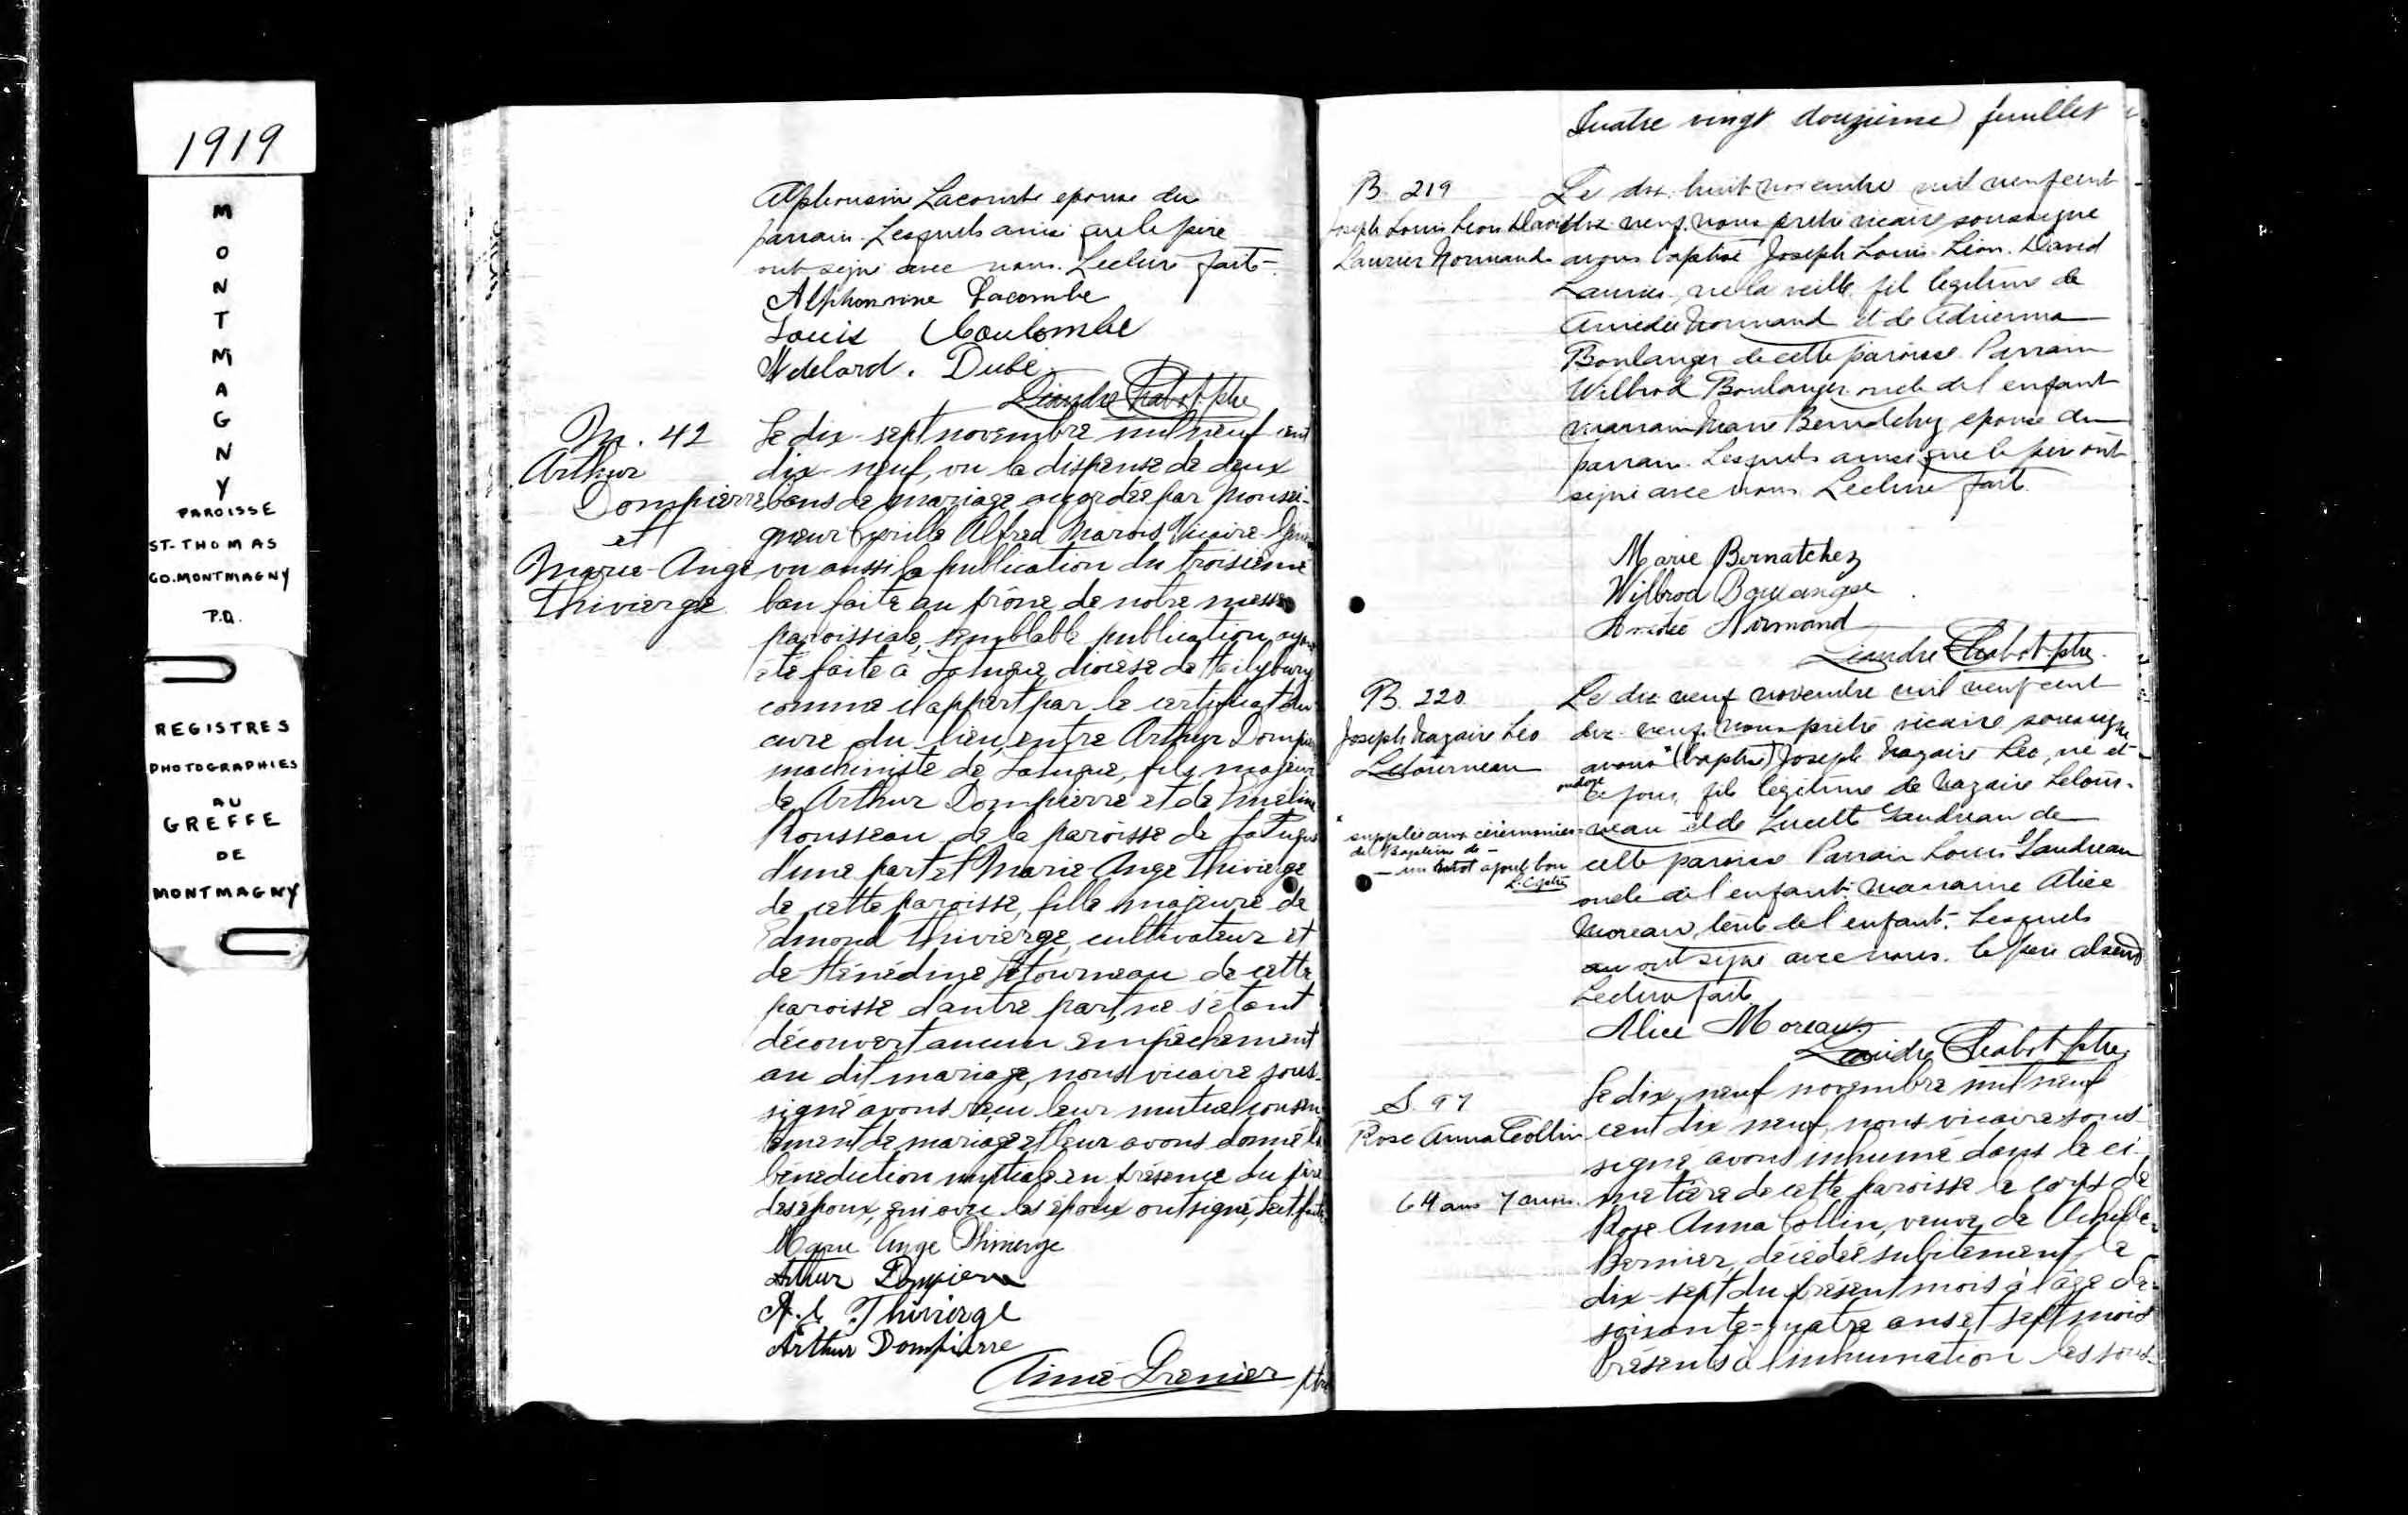 1919
MONTMAGNY
PAROISSE
ST-THOMAS
CO. MONTMAGNY
P.Q.
REGISTRES
PHOTOGRAPHIES
AU
GREFFE
DE
MONTMAGNY
Alphonsine Lacombe epouse du
parrain. Lesquels ainsi que le père
ont signé avec nous. Lecture faite.
Alphonsine Lacombe
Louis Coulombe
Adelard. Dubé
Léandre Chabot ptre
M. 42
Arthur
Dompierre
et
Marie-Ange
Thivierge
Le dix-sept novembre mil neuf cent
dix-neuf, vu la dispense de deux
bans de mariage accordée par Monsei-
gneur Cyrille Alfred Marois Vicaire
vu aussi la publication du troisième
ban faite au prône de notre messe
paroissiale, semblable publication ayant
été faite à Latuque, diocèse de Haileybury
comme il appert par le certificat du
curé du lieu, entre Arthur Dompierre
machiniste de Latuque, fils majeur
de Arthur Dompierre et de
Rousseau de la paroisse de LaTuque
d'une part et Marie-Ange Thivierge
de cette paroisse, fille majeure de
Edmond Thivierge, cultivateur et
de Hénédine Létourneau de cette
paroisse d'autre part, ne s'étant
découvert aucun empêchement
au dit mariage, nous vicaire sous-
signé avons reçu leur mutuel consen-
tement de mariage et leur avons donné la
bénédiction nuptiale en présence du père
des époux, qui avec les époux ont signé, Lect. faite
Marie Ange Thivierge
Arthur Dompierre
A. E. Thivierge
Arthur Dompierre
Aimé Grenier ptre
Quatre vingt douzième feuillet
B. 219
Joseph Louis Leon David
Laurier Normand
Le dix huit novembre mil neuf cent
dix neuf, nous prêtre vicaire soussigné
avons baptisé Joseph Louis Léon. David
Laurier, né la veille, fil legitime de
Amédée Normand et de Adrienna
Boulanger de cette paroisse. Parrain
Wilbrod Boulanger oncle de l'enfant
marraine Marie Bernatchez epouse du
parrain. Lesquels ainsi que le père ont
signé avec nous. Lecture faite.
Marie Bernatchez
Wilbrod Boulanger
Amédée Normand
Léandre Chabot ptre.
B. 220
Joseph Nazaire Léo
Letourneau
Le dix neuf novembre mil neuf cent
dix-neuf, nous prêtre vicaire soussigné
avons * (baptisé) Joseph Nazaire Leo, né et
ondoyé ce jour, fils légitime de Nazaire Létour-
neau et de Lucette Gaudreau de
cette paroisse Parrain Louis Gaudreau
oncle de l'enfant: marraine Alice
Moreau, tente de l'enfant. Lesquels
ont signé avec nous. le père absent
Lecture faite
* supplée aux cérémonies
du Baptême de -
- un mot ajouté bon
L. C. ptre
Alice Moreau
Léandre Chabot ptre
S. 97
Rose Anna Collin
64 ans 7 mois.
Le dix-neuf novembre mil neuf
cent dix neuf, nous vicaire sous-
signé avons inhumé dans le ci-
metière de cette paroisse le corps de
Rose Anna Collin, veuve de Achille
Bernier, décédée subitement le
dix-sept du présent mois à l'âge de
soixante-quatre ans et sept mois
Présents à l'inhumation les sous-